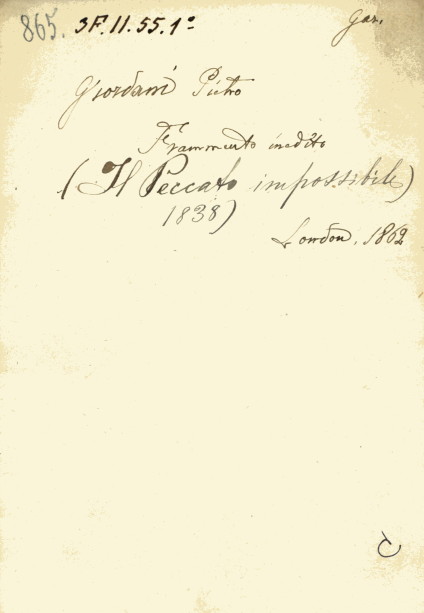 865. 3F.II.55.1°
Gar.
Giordani Pietro
Frammento inedito
(Il Peccato impossibile)
1838)
London, 1862